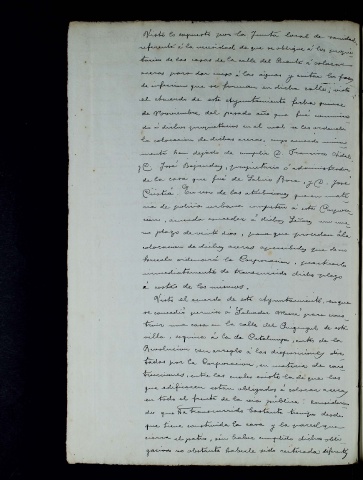 Visto lo expuesto por la Junta local de sanidad
referente á la necesidad de que se obligue á los propie-
tarios de las casas de la calle del Puente á colocar
aceras para dar curso á las aguas y evitar los focos
de infeccion que se forman en dicha calle; visto
el acuerdo de este Ayuntamiento fecha
de Noviembre del pasado año que fué
á dichos propietarios en el cual se les ordenaba
la colocacion de dichas aceras, cuyo acuerdo
han dejado de cumplir D. Francisco Vidal
y D. José propietario ó administrador
de la casa que fué de y D. José
En uso de las atribuciones que en mate-
ria de policia urbana competen á esta Corpora-
cion, acuerda conceder á dichos Señores un nue-
vo plazo de veinte dias, para que procedan á la
colocacion de dichas aceras apercibidos que de no
hacerlo ordenará la Corporacion, practicarlo
inmediatamente de transcurrido dicho plazo
á costas de los mismos.
Visto el acuerdo de este Ayuntamiento, en que
se concedió permiso á Salvador para cons-
truir una casa en la calle del de esta
villa, esquina á la de Catalunya, antes de la
Revolucion con arreglo á las disposiciones dic-
tadas por la Corporacion, en materia de cons-
trucciones, entre las cuales existe la de que los
que edifiquen esten obligados á colocar aceras
en todo el frente de la via pública: consideran-
do que ha transcurrido bastante tiempo desde
que tiene construida la casa y la pared que
cierra el patio, sin haber cumplido dichas obli-
gaciones no obstante haberle sido reiteradas diferentes